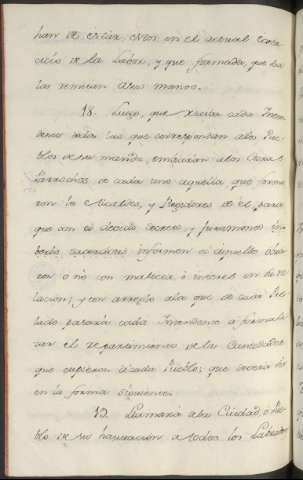 han de estar estos en el actual exer-
cicio de la Labor, y que formada, que sea
las remitan a sus manos.
18. Luego, que reciva cada Inten
dente todas las que correspondan a los Pue
blos de su mando, embiarán a los Curas
Parrocos de cada uno aquella que forma
ron los Alcaldes, y Regidores de él para
que con el devido secreto y juramento in
verbo sacerdotis informen si aquello obra
ron o no con malicia o interes en su re
lacion; y con arreglo a lo que de cada Pre
lado pasará cada Intendente a formali
zar el repartimiento de las Cantidades
que cupieren a cada Pueblo; que deverá ser
en la forma siguiente.
19. Llamará a la Ciudad, o Pue
blo de su havitacion a todos los Labradores